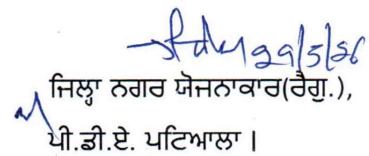 29/5/26
ਜਿਲ੍ਹਾ ਨਗਰ ਯੋਜਨਾਕਾਰ(ਰੈਗੂ.),
ਪੀ.ਡੀ.ਏ. ਪਟਿਆਲਾ |